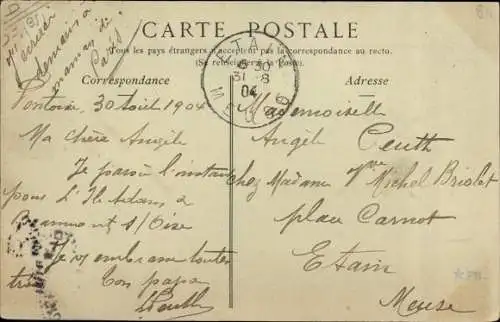 J'écrirai
demain à
maman de
Paris
CARTE POSTALE
Tous les pays étrangers n'acceptent pas la correspondance au recto.
(Se renseigner à la Poste).
Correspondance
Adresse
ETAIN
6 30
31 - 8
04
MEUSE
Pontoise, 30 Août 1904
Ma chère Angèle
Je pars à l'instant
pour L'Isle Adam, à
Beaumont s/Oise
Je v. embrasse toutes
trois
bon papa
Ceuth
Mademoiselle
Angèle Ceuth
chez Madame Vve Michel Briolot
place Carnot
Etain
Meuse